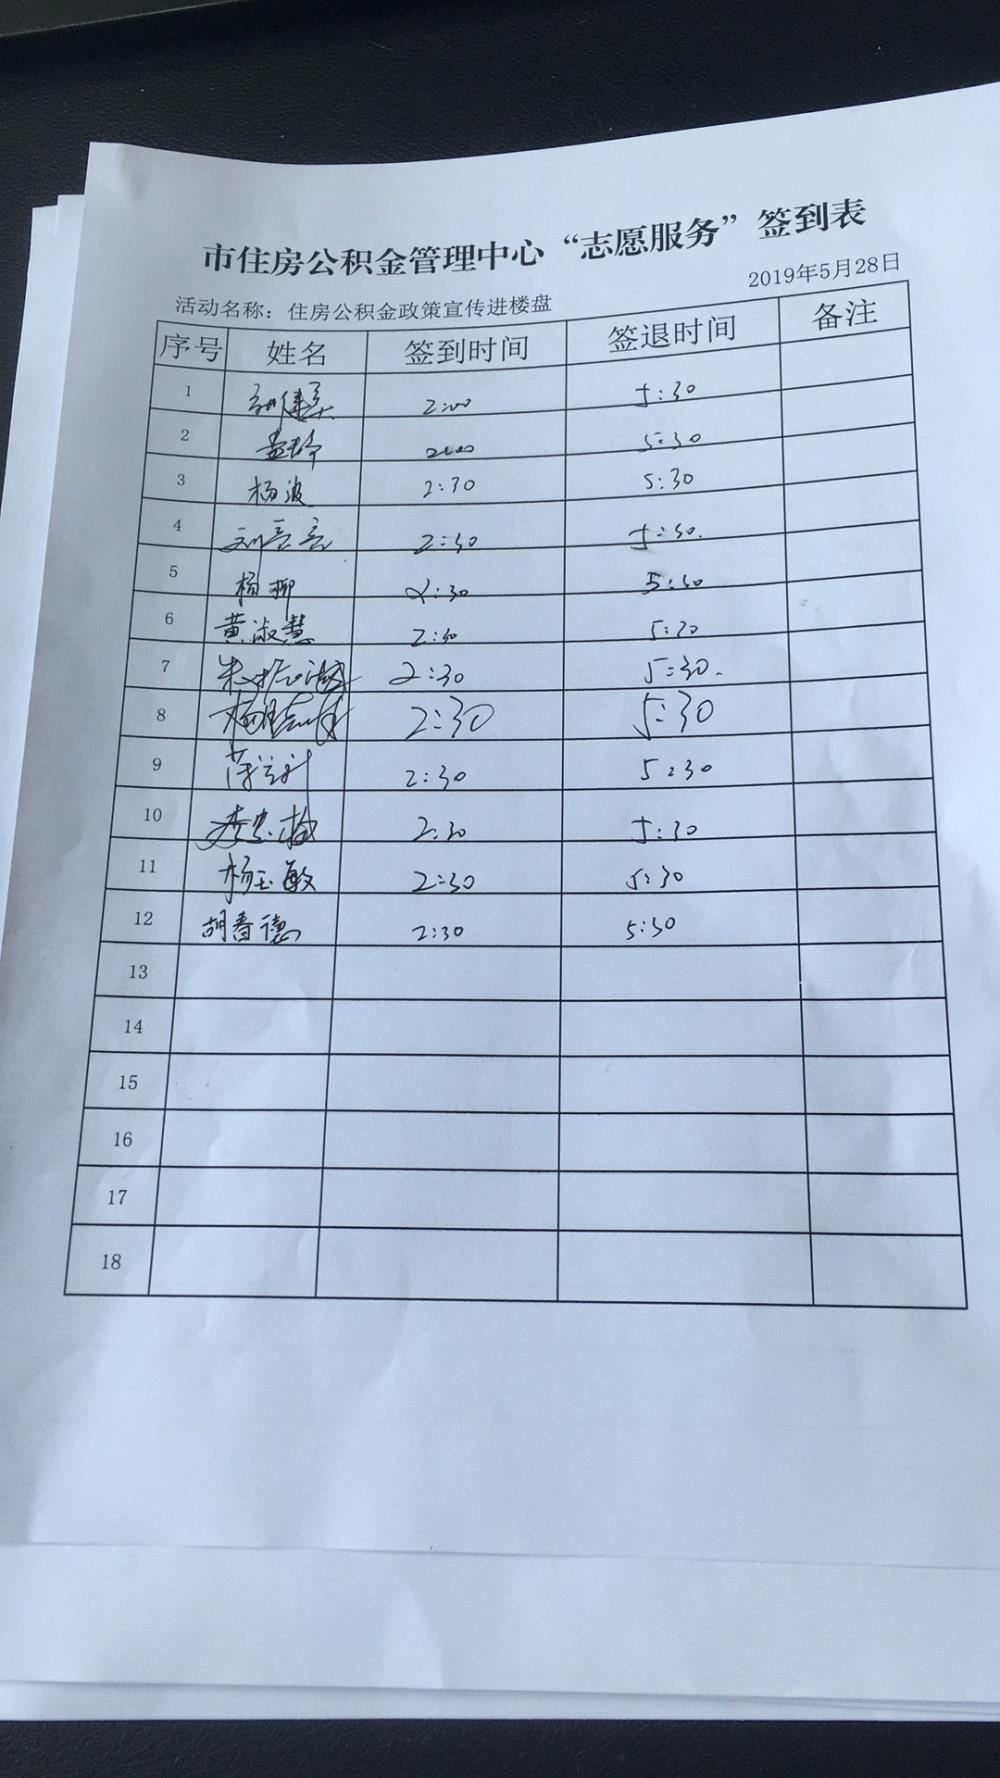 市住房公积金管理中心“志愿服务”签到表
2019年5月28日
活动名称：住房公积金政策宣传进楼盘
序号 姓名 签到时间 签退时间 备注
1 2:00 5:30
2 2:00 5:30
3 杨波 2:30 5:30
4 刘亮亮 2:30 5:30.
5 杨柳 2:30 5:30
6 黄淑慧 2:30 5:30
7 2:30 5:30.
8 2:30 5:30
9 2:30 5:30
10 2:30 5:30
11 杨玉敏 2:30 5:30
12 胡春德 2:30 5:30
13
14
15
16
17
18